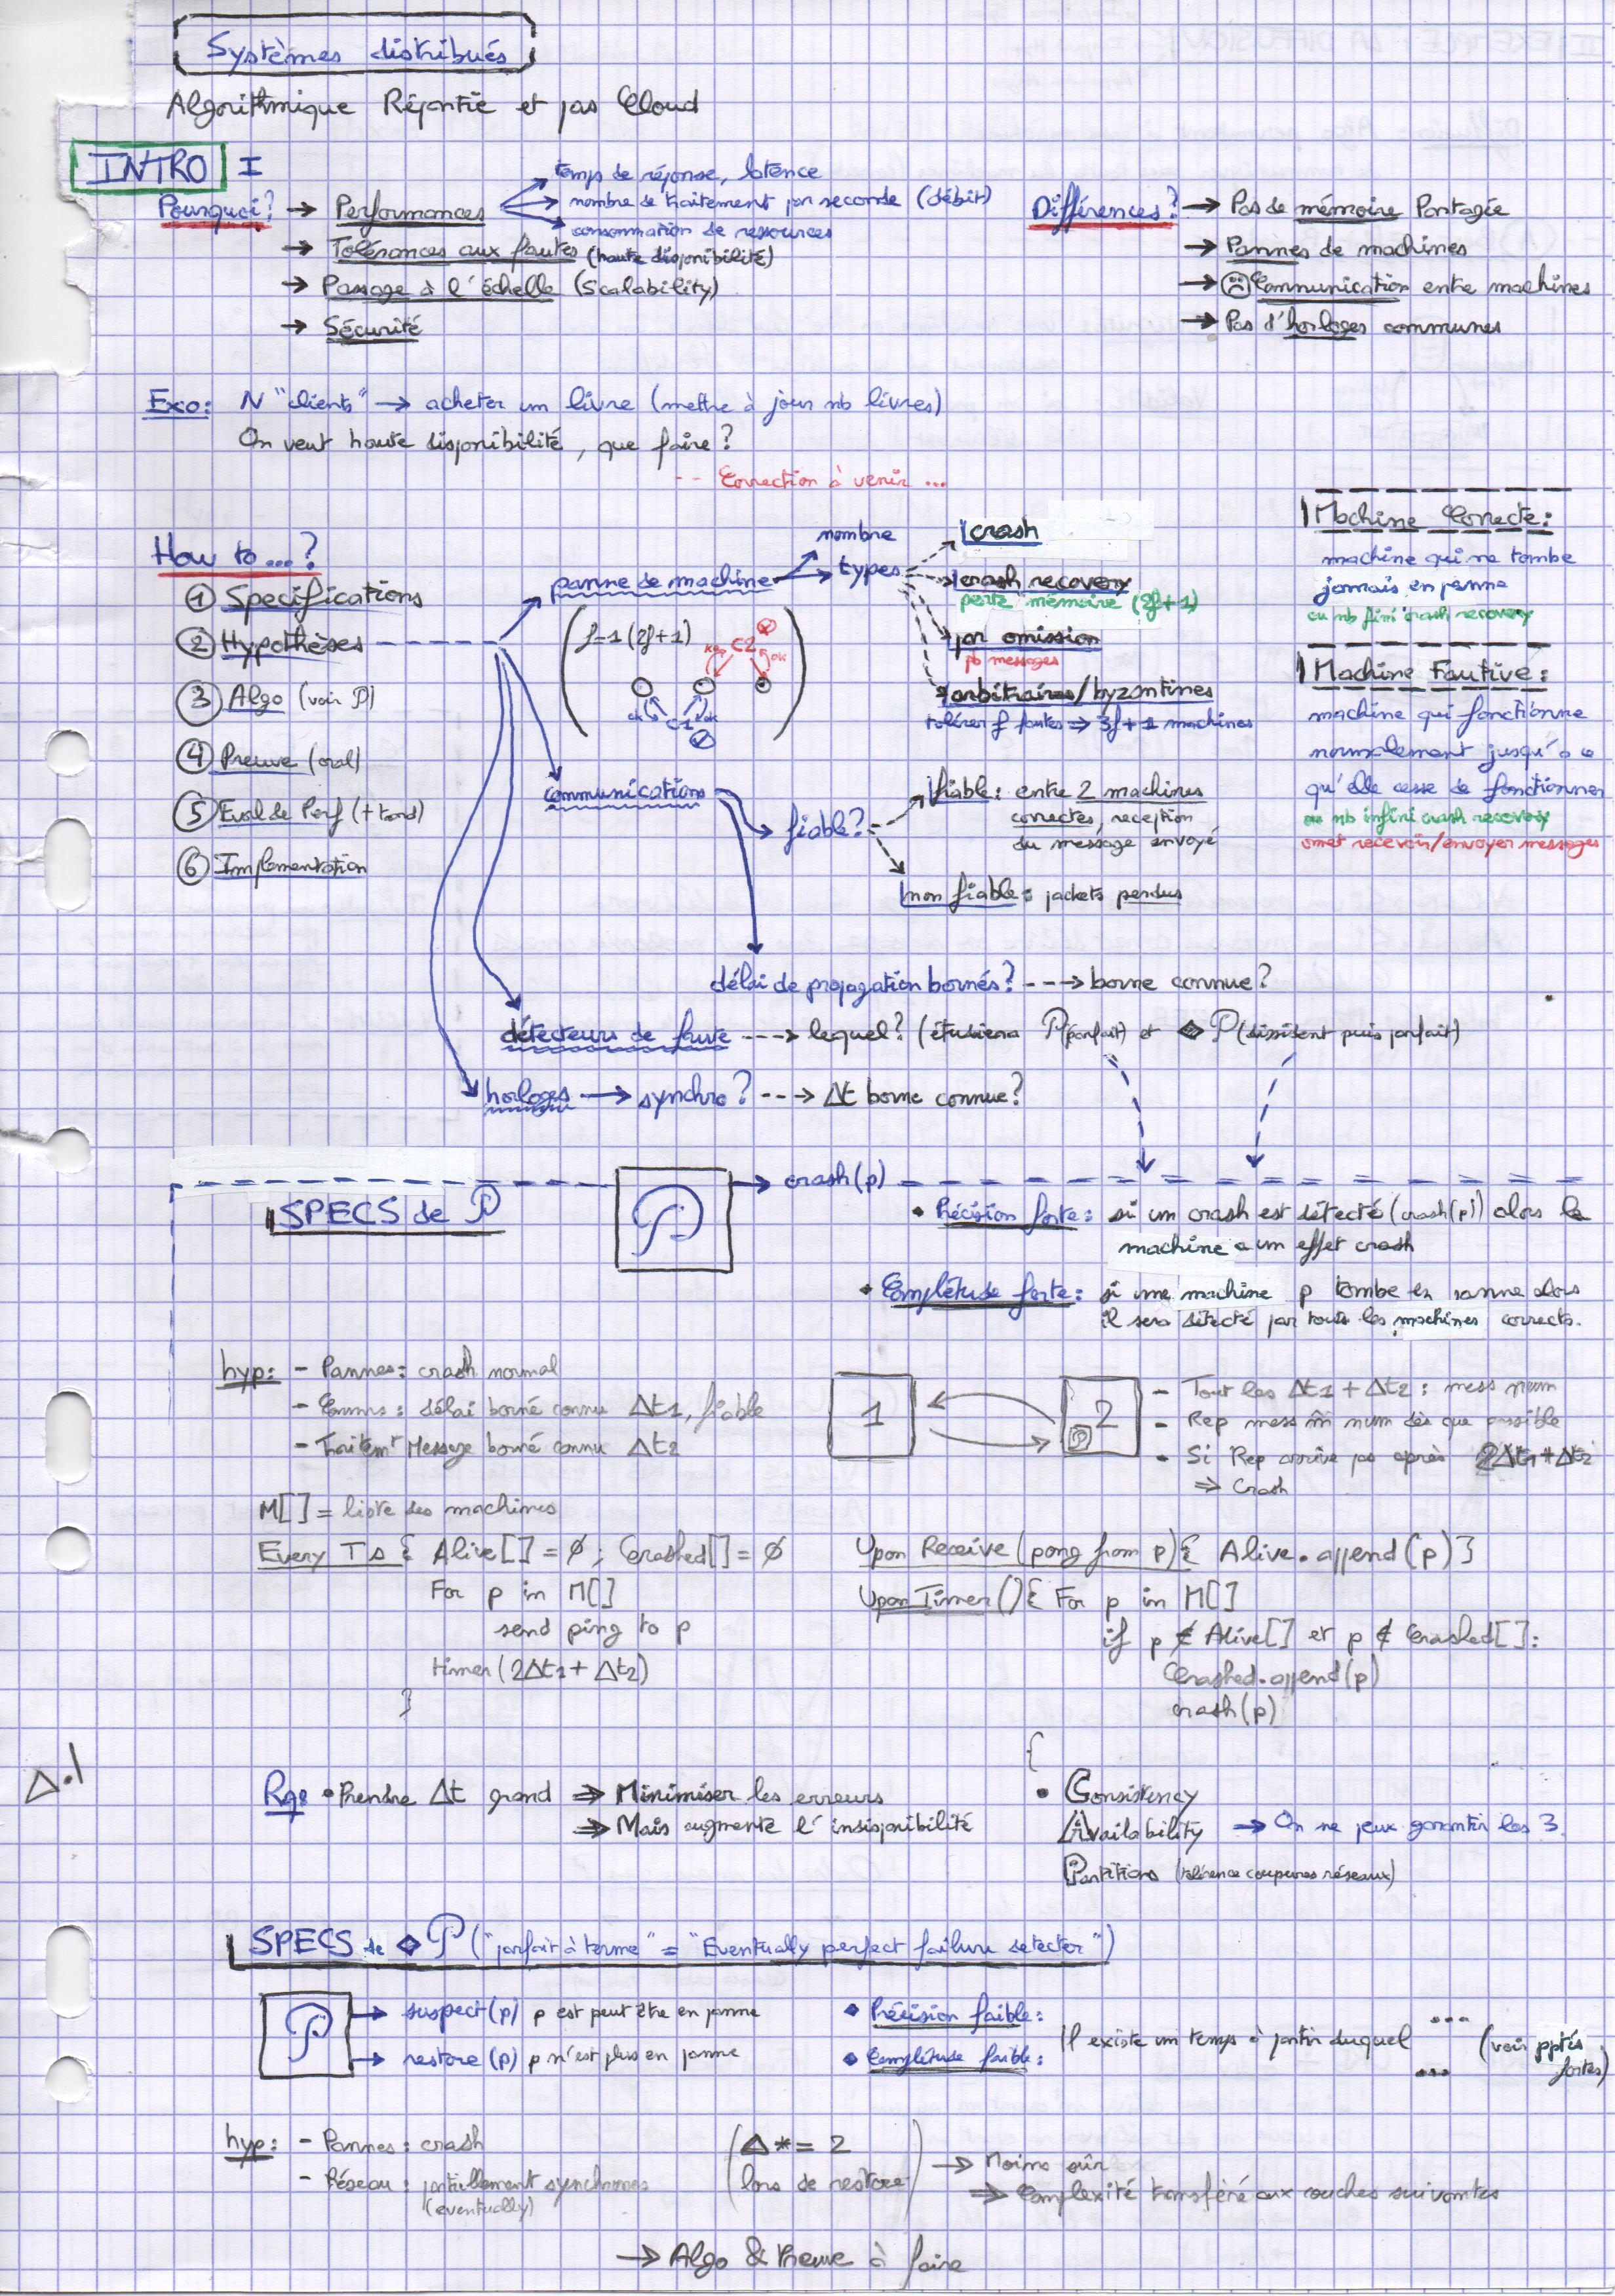 Systèmes distribués
Algorithmique Répartie et pas Cloud
INTRO I
Pourquoi? → Performances
temps de réponse, latence
nombre de traitement par seconde (débit)
consommation de ressources
→ Tolérances aux fautes (haute disponibilité)
→ Passage à l'échelle (Scalability)
→ Sécurité
Différences? → Pas de mémoire Partagée
→ Pannes de machines
→ ☹ Communication entre machines
→ Pas d'horloges communes
Exo: N "clients" → acheter un livre (mettre à jour nb livres)
On veut haute disponibilité, que faire?
-- Correction à venir ...
How to ... ?
① Specifications
② Hypothèses
③ Algo (voir P)
④ Preuve (oral)
⑤ Eval de Perf (+ tard)
⑥ Implementation
panne de machine
nombre
types
crash
crash recovery
perte mémoire (2f+1)
par omission
pb messages
arbitraires/byzantines
tolérer f fautes ⇒ 3f+1 machines
f=1 (2f+1)
C2
ok
ok
C1
ok
Machine Correcte:
machine qui ne tombe
jamais en panne
ou nb fini crash recovery
Machine Fautive:
machine qui fonctionne
normalement jusqu'à ce
qu'elle cesse de fonctionner
ou nb infini crash recovery
omet recevoir/envoyer messages
communications
fiable?
fiable: entre 2 machines
correctes, reception
du message envoyé
non fiable: packets perdus
délai de propagation bornés? ---> borne connue?
détecteurs de faute ---> lequel? (étudiera P (parfait) et ◆P (dissident puis parfait)
horloges → synchro? ---> Δt borne connue?
SPECS de P
P → crash(p)
• Précision forte: si un crash est détecté (crash(p)) alors la
machine a un effet crash
• Complétude forte: si une machine p tombe en panne alors
il sera détecté par touts les machines corrects.
hyp: - Pannes: crash normal
- Comms: délai borné connu Δt1, fiable
- Traitemt Message borné connu Δt2
1
2
P
- Tout les Δt1 + Δt2: mess num
- Rep mess m̂ num dès que possible
- Si Rep arrive pas après 2Δt1+Δt2
⇒ Crash
M[] = liste des machines
Every Ts { Alive[] = ∅; Crashed[] = ∅
For p in M[]
send ping to p
timer (2Δt1 + Δt2)
}
Upon Receive (pong from p) { Alive.append(p) }
Upon Timer () { For p in M[]
if p ∉ Alive[] et p ∉ Crashed[]:
Crashed.append(p)
crash(p)
{
Δ.!
Rq: • Prendre Δt grand ⇒ Minimiser les erreurs
⇒ Mais augmente l'indisponibilité
• Consistency
Availability → On ne peux garantir les 3.
Partitions (tolérence coupures réseaux)
SPECS de ◆P ("parfait à terme" = "Eventually perfect failure detecter")
P
→ suspect(p) p est peut être en panne
→ restore(p) p n'est plus en panne
◆ Précision faible:
◆ Complétude faible:
Il existe un temps à partir duquel ...
... (voir pptés
fortes)
hyp: - Pannes: crash
- Réseau: partiellement synchrones
(eventually)
(Δ*= 2
lors de restore)
→ Moins sûr
⇒ Complexité transféré aux couches suivantes
→ Algo & Preuve à faire